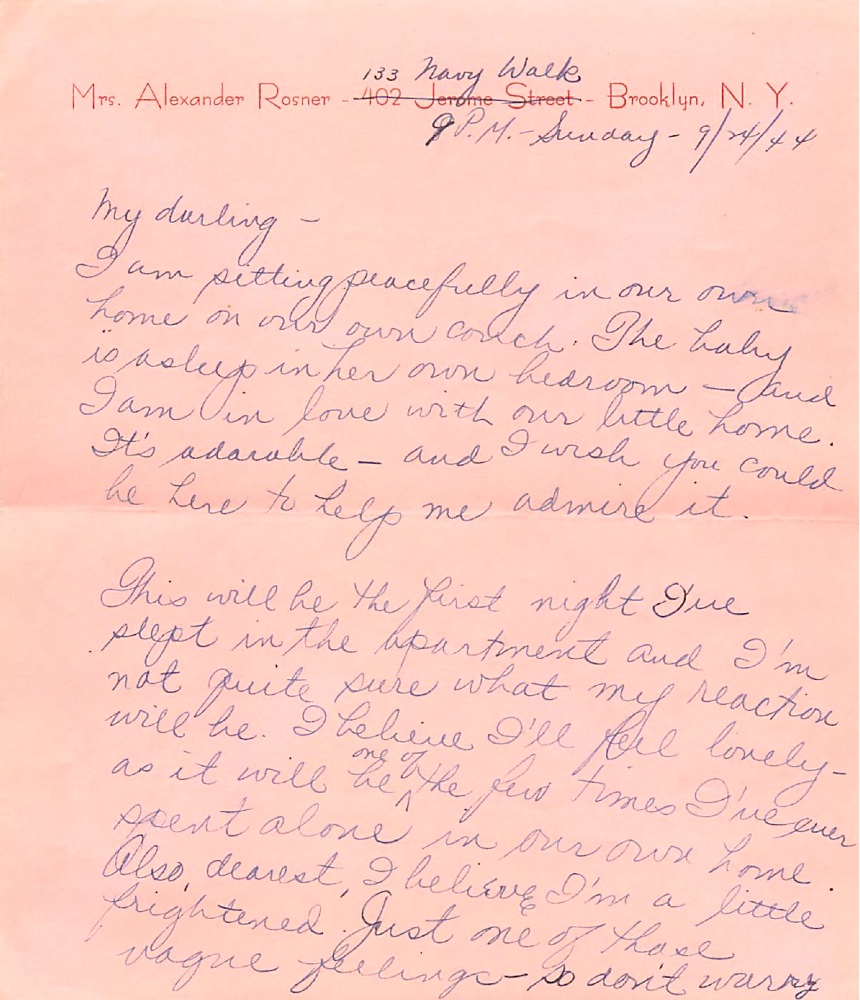 133 Navy Walk
Mrs. Alexander Rosner - 402 Jerome Street - Brooklyn, N. Y.
9 P.M. - Sunday - 9/24/44
My darling -
I am sitting peacefully in our own
home on our own couch. The baby
is asleep in her own bedroom - and
I am in love with our little home.
It's adorable - and I wish you could
be here to help me admire it.
This will be the first night I've
slept in the apartment and I'm
not quite sure what my reaction
will be. I believe I'll feel lonely -
as it will be one of the few times I've ever
spent alone in our own home.
Also, dearest, I believe I'm a little
frightened. Just one of those
vague feelings - so don't worry